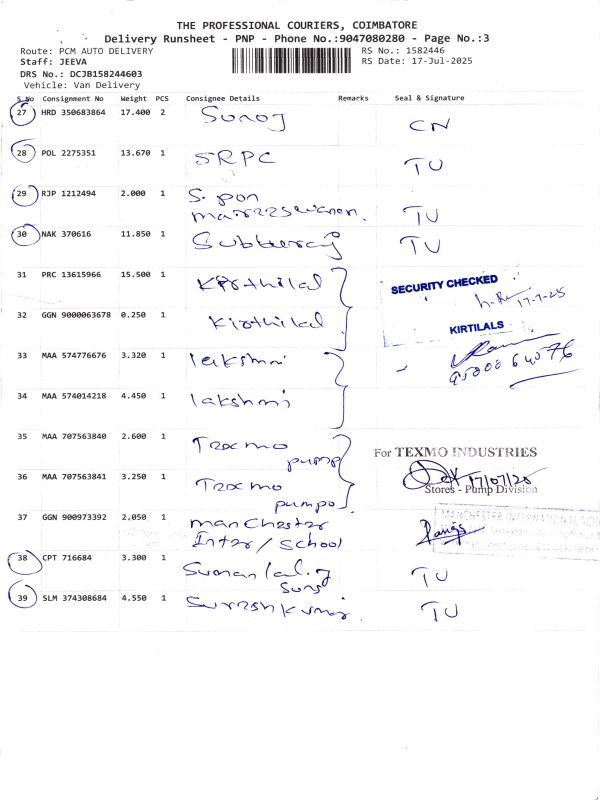 THE PROFESSIONAL COURIERS, COIMBATORE
Delivery Runsheet - PNP - Phone No.:9047080280 - Page No.:3
Route: PCM AUTO DELIVERY
RS No.: 1582446
Staff: JEEVA
RS Date: 17-Jul-2025
DRS No.: DCJB158244603
Vehicle: Van Delivery
S No Consignment No Weight PCS Consignee Details Remarks Seal & Signature
27 HRD 350683864 17.400 2 Suroj CN
28 POL 2275351 13.670 1 SRPC TU
29 RJP 1212494 2.000 1 S. pon
TU
30 NAK 370616 11.850 1 TU
31 PRC 13615966 15.500 1 Kirthilal
SECURITY CHECKED
17-7-25
32 GGN 9000063678 0.250 1 Kirthilal
KIRTILALS
33 MAA 574776676 3.320 1 lakshmi
95000 64076
34 MAA 574014218 4.450 1 lakshmi
35 MAA 707563840 2.600 1 Texmo
pump
For TEXMO INDUSTRIES
36 MAA 707563841 3.250 1 Texmo
pumpo
17/07/25
Stores - Pump Division
37 GGN 900973392 2.050 1 Manchester
Inter/School
MANCHESTER INTERNATIONAL
38 CPT 716684 3.300 1 Sumanlal. J
Sons
TU
39 SLM 374308684 4.550 1 Sureshkumar
TU